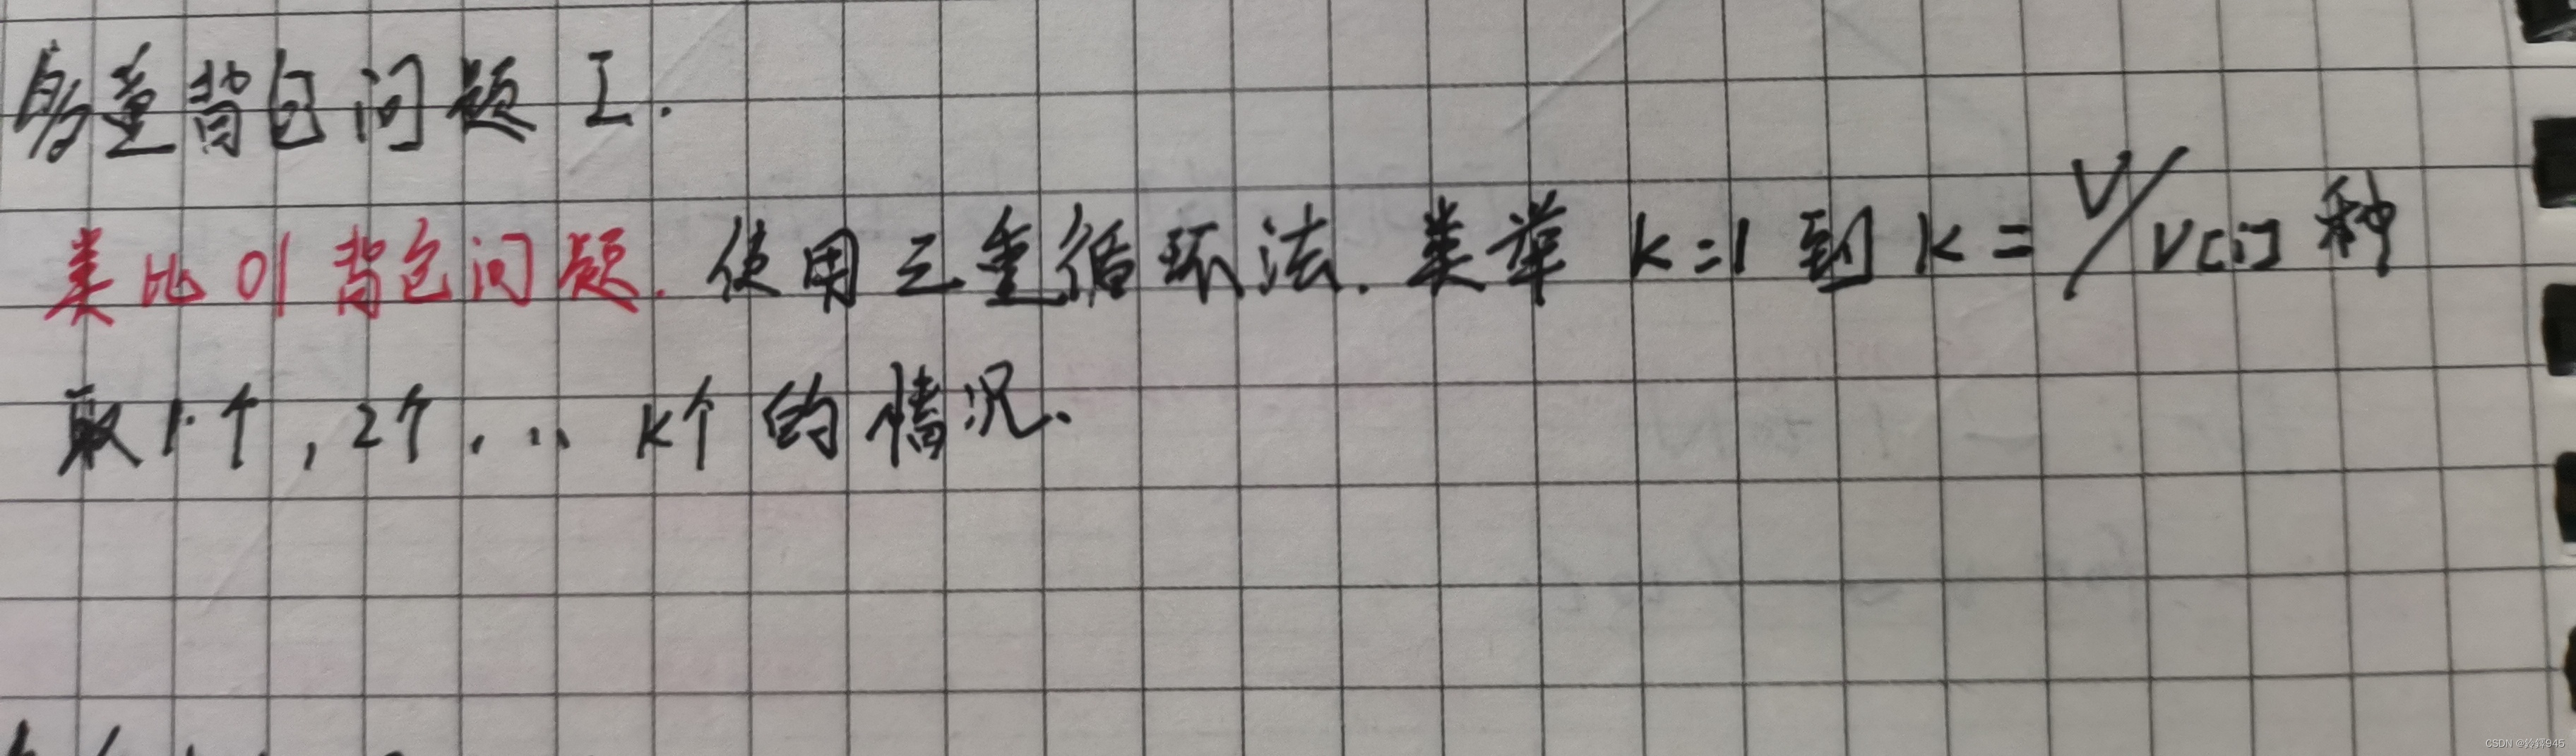 多重背包问题 I.
类比01背包问题. 使用三重循环法. 类举 k=1 到 k = V/v[i] 种
取1个, 2个, ... k个的情况.
CSDN @铃铎945